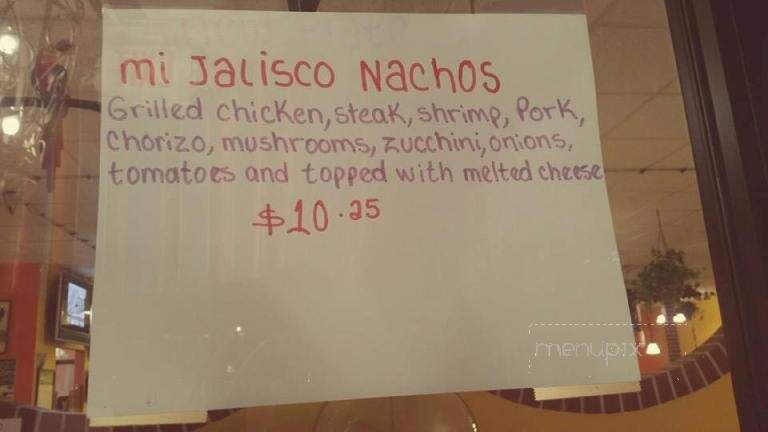 mi Jalisco Nachos
Grilled chicken, steak, shrimp, Pork,
chorizo, mushrooms, zucchini, onions,
tomatoes and topped with melted cheese
$10.25
menupix